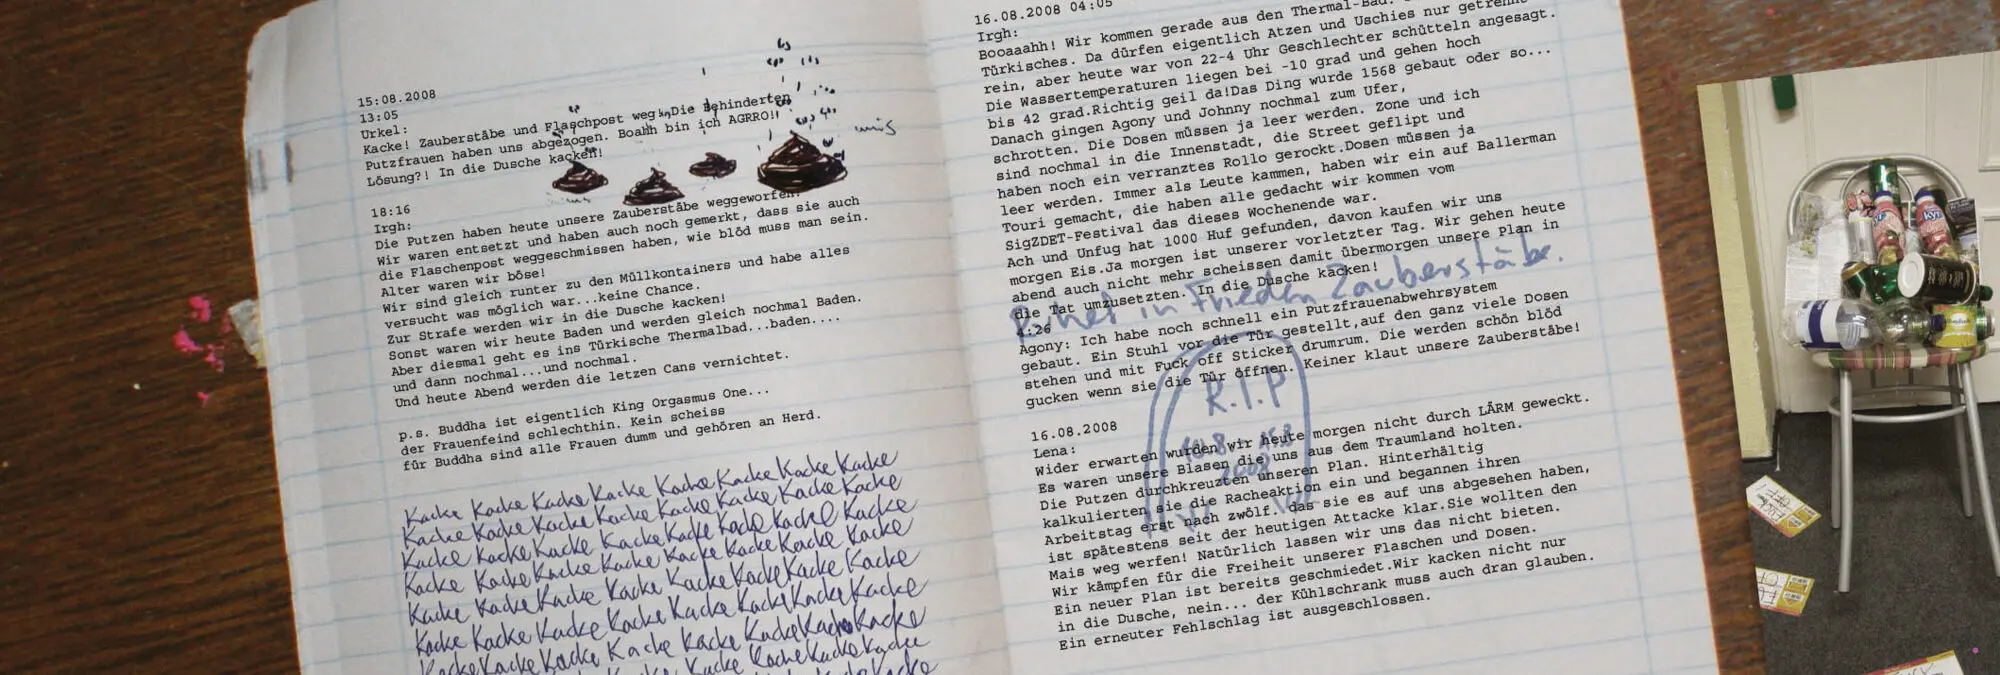 15:08.2008
13:05
Urkel:
Kacke! Zauberstäbe und Flaschpost weg Die Behinderten
Putzfrauen haben uns abgezogen. Boahh bin ich AGRRO!!
Lösung?! In die Dusche kacken!
18:16
Irgh:
Die Putzen haben heute unsere Zauberstäbe weggeworfen!
Wir waren entsetzt und haben auch noch gemerkt, dass sie auch
die Flaschenpost weggeschmissen haben, wie blöd muss man sein.
Alter waren wir böse!
Wir sind gleich runter zu den Müllkontainers und habe alles
versucht was möglich war...keine Chance.
Zur Strafe werden wir in die Dusche kacken!
Sonst waren wir heute Baden und werden gleich nochmal Baden.
Aber diesmal geht es ins Türkische Thermalbad...baden....
und dann nochmal...und nochmal.
Und heute Abend werden die letzen Cans vernichtet.
p.s. Buddha ist eigentlich King Orgasmus One...
der Frauenfeind schlechthin. Kein scheiss
für Buddha sind alle Frauen dumm und gehören an Herd.
Kacke Kacke Kacke Kacke Kacke Kacke Kacke Kacke
Kacke Kacke Kacke Kacke Kacke Kacke Kacke Kacke
Kacke Kacke Kacke Kacke Kacke Kacke Kacke Kacke
Kacke Kacke Kacke Kacke Kacke Kacke Kacke Kacke
Kacke Kacke Kacke Kacke Kacke Kacke Kacke Kacke
Kacke Kacke Kacke Kacke Kacke Kacke Kacke Kacke
Kacke Kacke Kacke Kacke Kacke Kacke Kacke Kacke
Kacke Kacke Kacke Kacke Kacke
16.08.2008 04:05
Irgh:
Booaaahh! Wir kommen gerade aus den Thermal-Bad.
Türkisches. Da dürfen eigentlich Atzen und Uschies nur getrennt
rein, aber heute war von 22-4 Uhr Geschlechter schütteln angesagt.
Die Wassertemperaturen liegen bei -10 grad und gehen hoch
bis 42 grad.Richtig geil da!Das Ding wurde 1568 gebaut oder so...
Danach gingen Agony und Johnny nochmal zum Ufer,
schrotten. Die Dosen müssen ja leer werden. Zone und ich
sind nochmal in die Innenstadt, die Street geflipt und
haben noch ein verranztes Rollo gerockt.Dosen müssen ja
leer werden. Immer als Leute kammen, haben wir ein auf Ballerman
Touri gemacht, die haben alle gedacht wir kommen vom
SigZDET-Festival das dieses Wochenende war.
Ach und Unfug hat 1000 Huf gefunden, davon kaufen wir uns
morgen Eis.Ja morgen ist unserer vorletzter Tag. Wir gehen heute
abend auch nicht mehr scheissen damit übermorgen unsere Plan in
die Tat umzusetzten. In die Dusche kacken!
Ruhet in Frieden Zauberstäbe.
4:26
Agony: Ich habe noch schnell ein Putzfrauenabwehrsystem
gebaut. Ein Stuhl vor die Tür gestellt,auf den ganz viele Dosen
stehen und mit Fuck off Sticker drumrum. Die werden schön blöd
gucken wenn sie die Tür öffnen. Keiner klaut unsere Zauberstäbe!
R.I.P
10.8 15.8
2008
16.08.2008
Lena:
Wider erwarten wurden wir heute morgen nicht durch LÄRM geweckt.
Es waren unsere Blasen die uns aus dem Traumland holten.
Die Putzen durchkreuzten unseren Plan. Hinterhältig
kalkulierten sie die Racheaktion ein und begannen ihren
Arbeitstag erst nach zwölf. das sie es auf uns abgesehen haben,
ist spätestens seit der heutigen Attacke klar.Sie wollten den
Mais weg werfen! Natürlich lassen wir uns das nicht bieten.
Wir kämpfen für die Freiheit unserer Flaschen und Dosen.
Ein neuer Plan ist bereits geschmiedet.Wir kacken nicht nur
in die Dusche, nein... der Kühlschrank muss auch dran glauben.
Ein erneuter Fehlschlag ist ausgeschlossen.